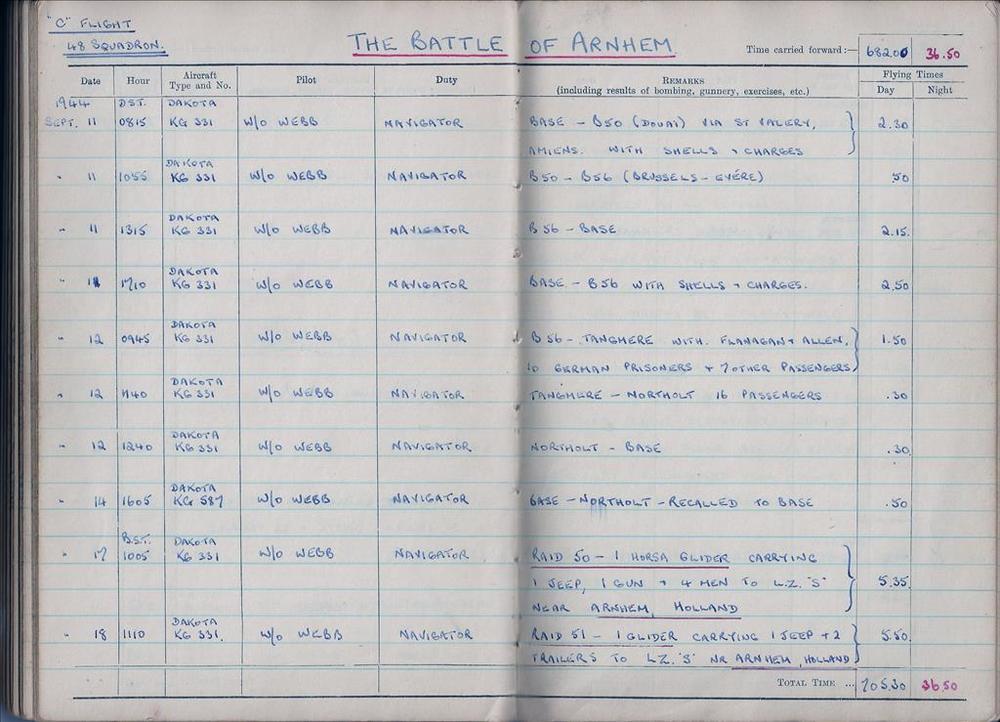 "C" FLIGHT
48 SQUADRON.
THE BATTLE OF ARNHEM
Time carried forward:— 682.00 36.50
Date Hour Aircraft Type and No. Pilot Duty REMARKS (including results of bombing, gunnery, exercises, etc.) Flying Times Day Night
1944 D.S.T. DAKOTA
SEPT. 11 0815 KG 331 W/O WEBB NAVIGATOR BASE – B50 (DOUAI) VIA ST VALERY, 2.30
AMIENS. WITH SHELLS + CHARGES
DAKOTA
" 11 1055 KG 331 W/O WEBB NAVIGATOR B50 – B56 (BRUSSELS – EVÉRE) .50
DAKOTA
" 11 1315 KG 331 W/O WEBB NAVIGATOR B56 – BASE 2.15.
DAKOTA
" 11 1710 KG 331 W/O WEBB NAVIGATOR BASE – B56 WITH SHELLS + CHARGES. 2.50
DAKOTA
" 12 0945 KG 331 W/O WEBB NAVIGATOR B56 – TANGMERE WITH FLANAGAN + ALLEN, 1.50
10 GERMAN PRISONERS + 7 OTHER PASSENGERS
DAKOTA
" 12 1140 KG 331 W/O WEBB NAVIGATOR TANGMERE – NORTHOLT 16 PASSENGERS .30
DAKOTA
" 12 1240 KG 331 W/O WEBB NAVIGATOR NORTHOLT – BASE .30
DAKOTA
" 14 1605 KG 587 W/O WEBB NAVIGATOR BASE – NORTHOLT – RECALLED TO BASE .50
B.S.T. DAKOTA
" 17 1005 KG 331 W/O WEBB NAVIGATOR RAID 50 – 1 HORSA GLIDER CARRYING
1 JEEP, 1 GUN + 4 MEN TO L.Z. 'S' 5.35
NEAR ARNHEM, HOLLAND
DAKOTA
" 18 1110 KG 331. W/O WEBB NAVIGATOR RAID 51 – 1 GLIDER CARRYING 1 JEEP + 2 5.50
TRAILERS TO L.Z. 'S' NR ARNHEM, HOLLAND
TOTAL TIME ... 705.30 36.50